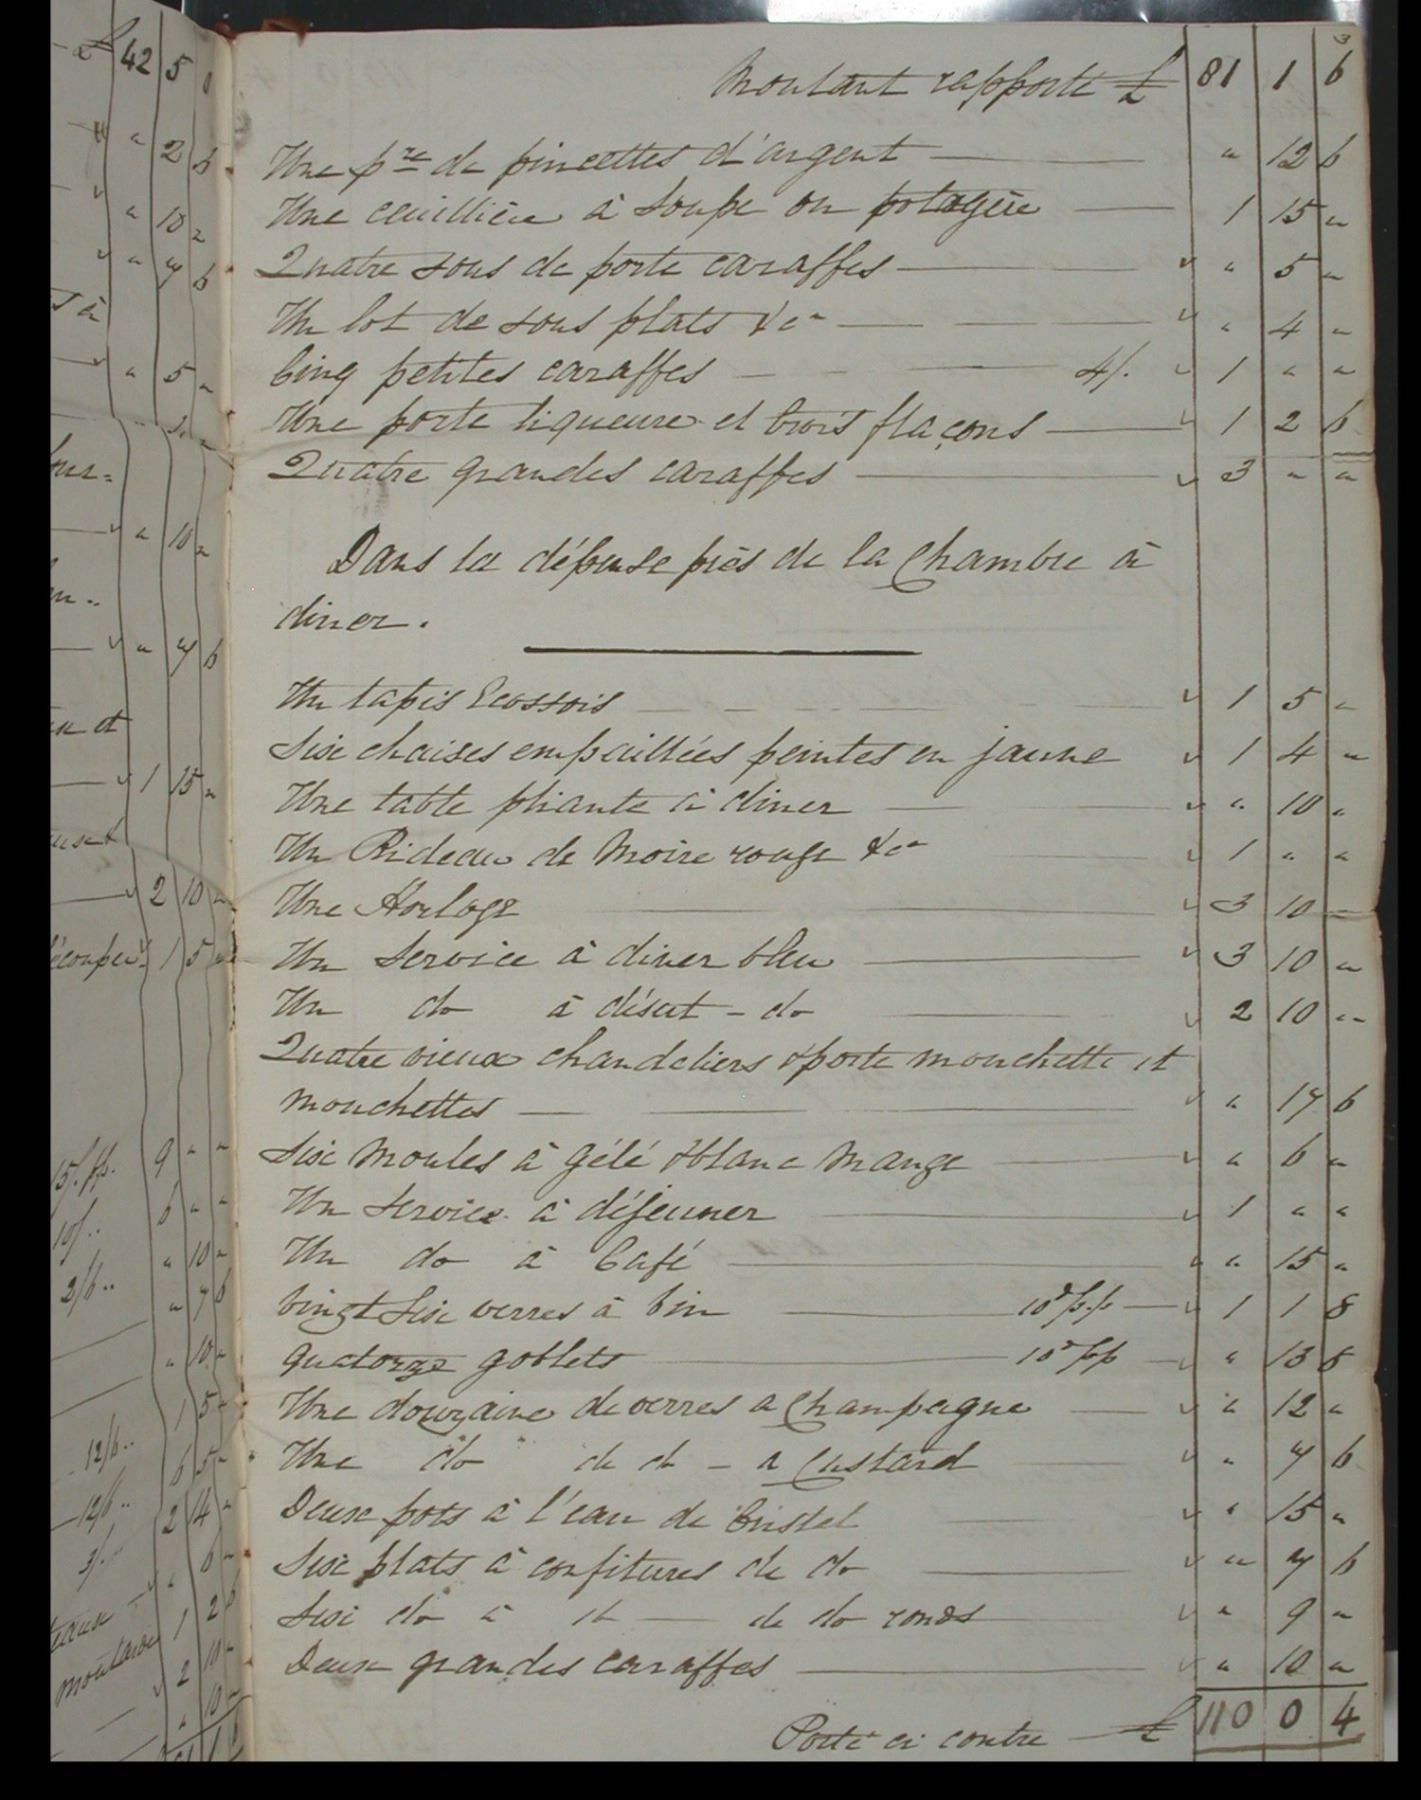 Montant rapporté £ 81 1 6
Une pre de pincettes d'argent — " 12 6
Une ceuillière à soupe ou potagère — 1 15 "
Quatre sous de porte caraffes — " 5 "
Un lot de sous plats &ca — " 4 "
Cinq petites caraffes — 4/. 1 " "
Une porte liqueure et trois flaçons — 1 2 6
Quatre grandes caraffes — 3 " "
Dans la dépense près de la Chambre à
diner.
Un tapis Ecossois — 1 5 "
Six chaises empaillées peintes en jaune 1 4 "
Une table pliante à diner — " 10 "
Un Rideau de Moire rouge &ca 1 " "
Une Horloge — 3 10 "
Un Service à diner bleu — 3 10 "
Un do à désert - do — 2 10 "
Quatre vieux chandeliers & porte mouchette et
mouchettes — " 17 6
Six Moules à gélé & blanc Mange — " 6 "
Un Service à déjeuner — 1 " "
Un do à Café — " 15 "
Vingt Six verres à Vin — 10d p.p — 1 1 8
Quatorze goblets — 10d pp — " 13 8
Une douzaine de verres a Champagne — " 12 "
Une do de do - a Custard — " 7 6
Deux pots à l'eau de Cristel — " 15 "
Six plats à confitures de do — " 7 6
Six do à do — de do ronds " 9 "
Deux grandes caraffes — " 10 "
Porté ci contre — £ 110 0 4